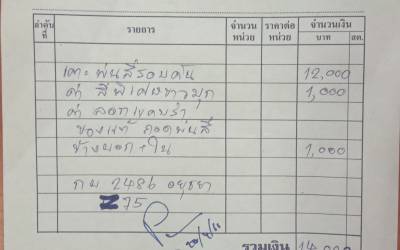 ลำดับที่ รายการ จำนวนหน่วย ราคาต่อหน่วย จำนวนเงิน บาท สต.
เคาะพ่นสีรอบคัน 12,000
ค่า สีพิเศษขาวมุก 1,000
ค่า ลอกแคบร่า
ของแท้ ถอดพ่นสี
ข้างนอก + ใน 1,000
กน 2486 อยุธยา
Z75
รวมเงิน 14,000